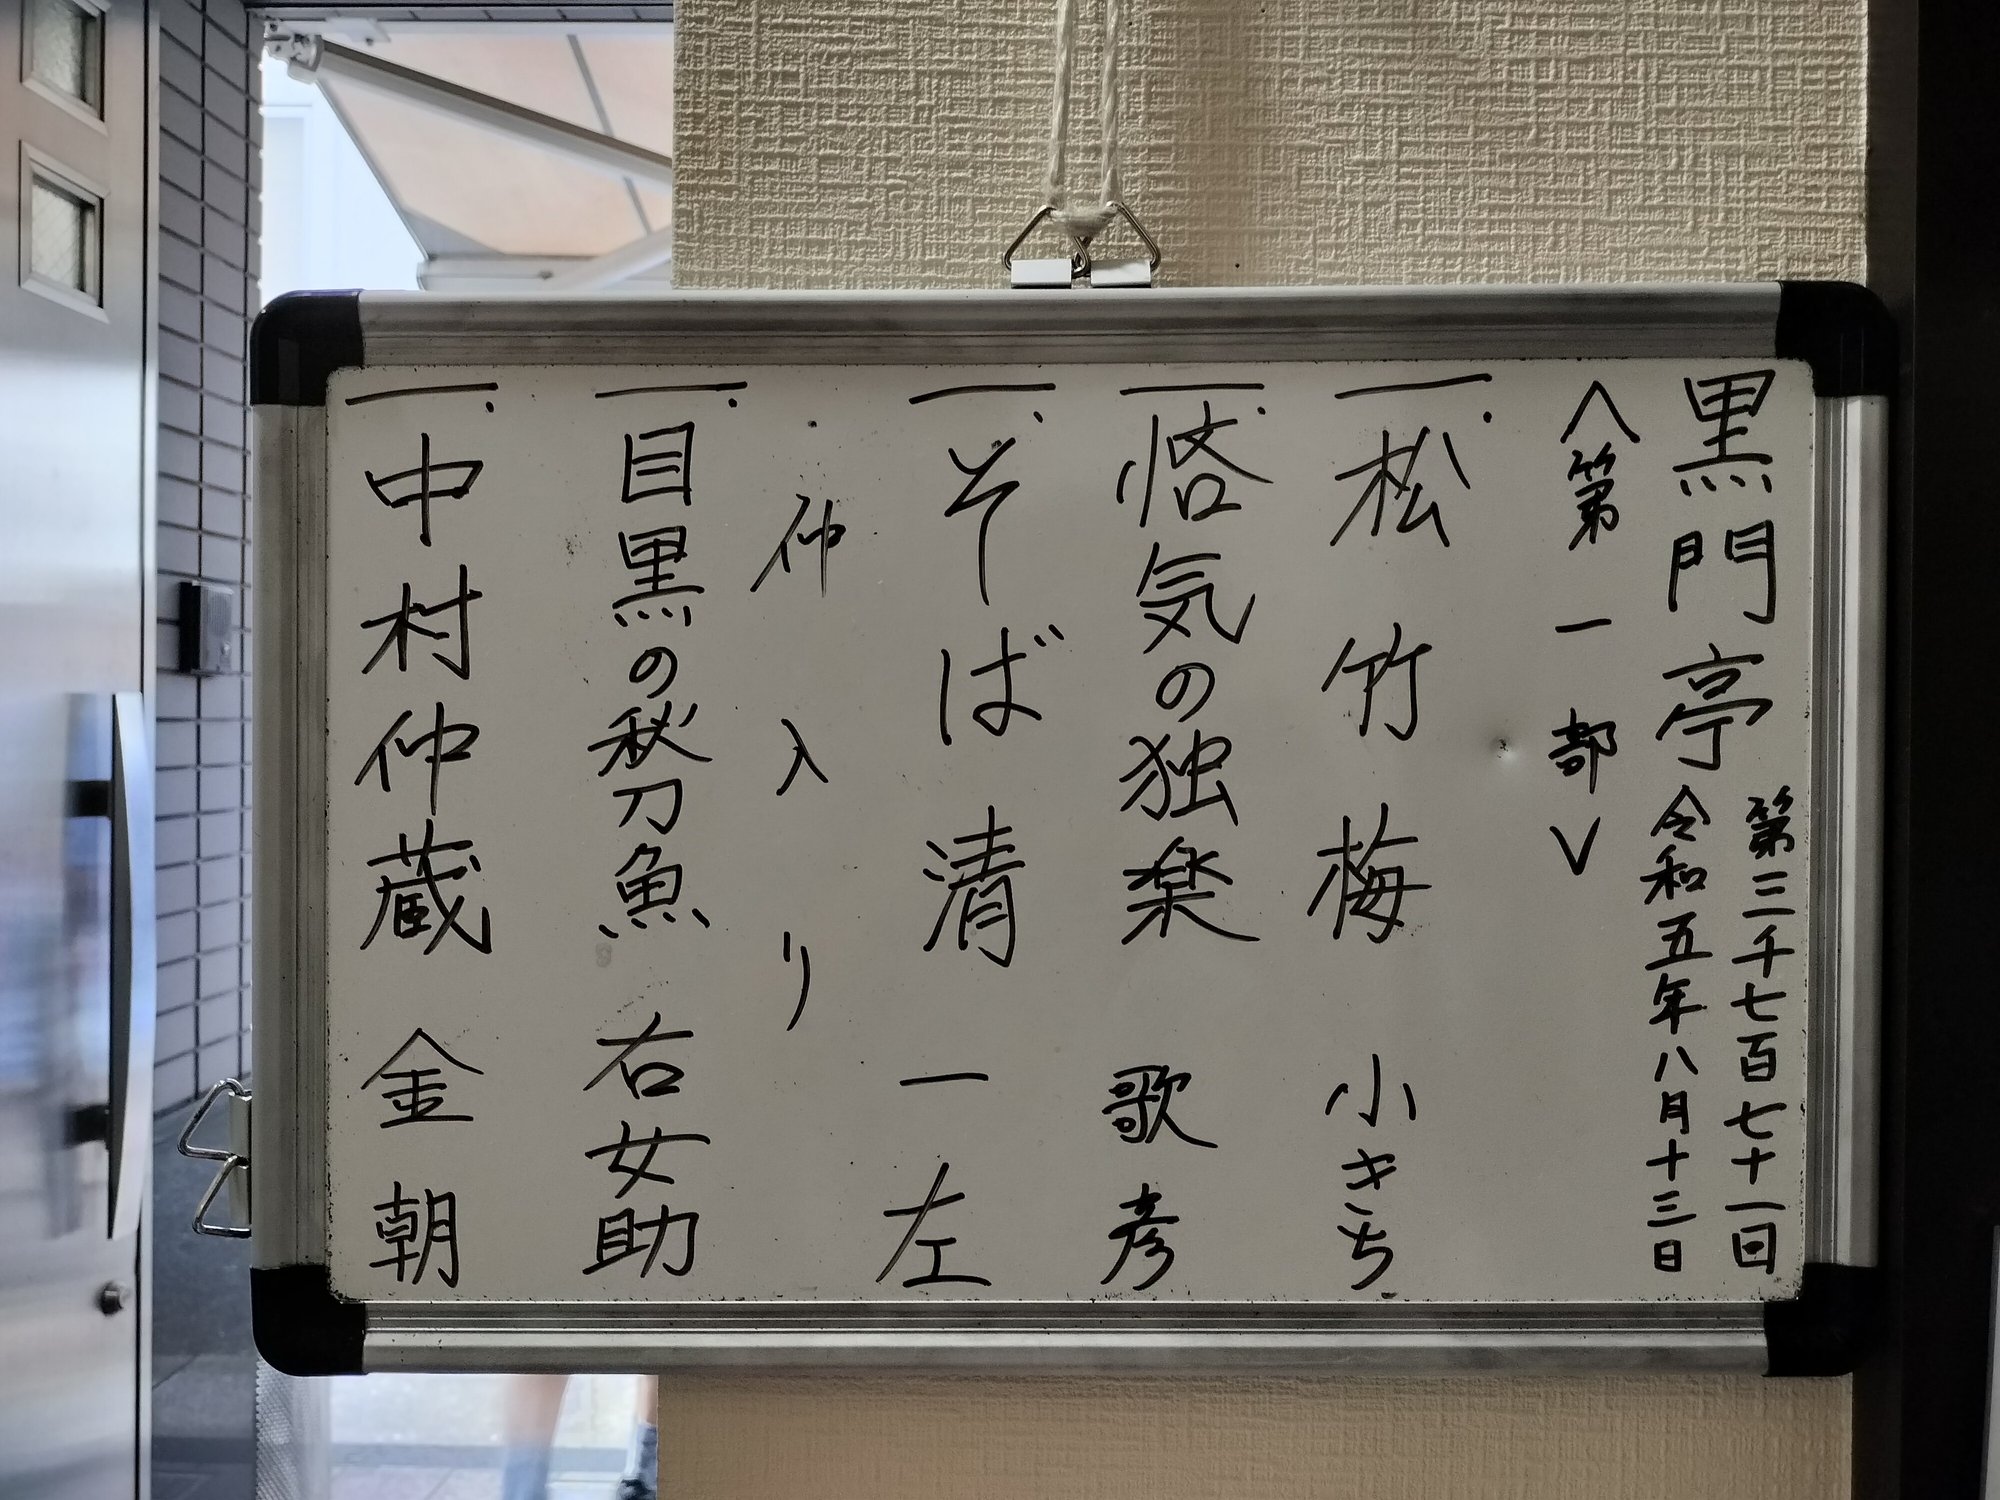 黒門亭
第三千七百七十一回
令和五年八月十三日
＜第一部＞
一.松竹梅 小きち
一.悋気の独楽 歌彦
一.そば清 一左
仲入り
一.目黒の秋刀魚 右女助
一.中村仲蔵 金朝